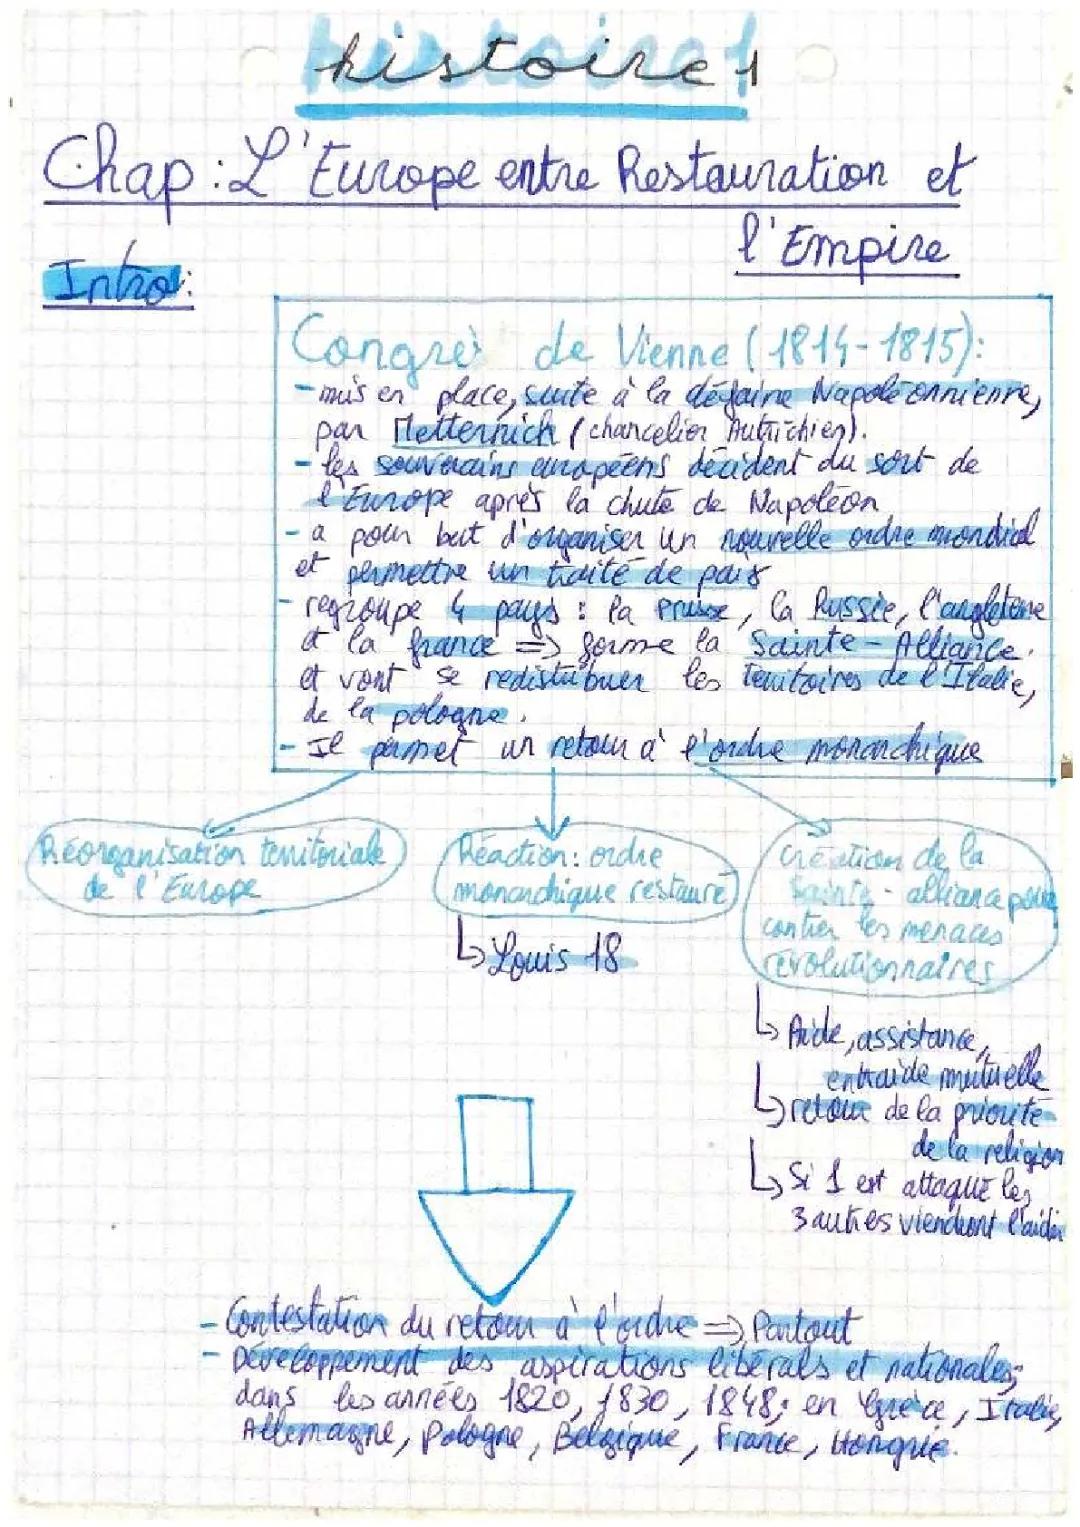 histoire 1
Chap : L'Europe entre Restauration et
l'Empire
Intro :
Congrès de Vienne (1814-1815):
- mis en place, suite à la défaine Napoléonnienne,
par Metternich (chancelier Autrichien).
- les souverains européens décident du sort de
l'Europe après la chute de Napoléon
- a pour but d'organiser un nouvelle ordre mondial
et permettre un traité de paix
- regroupe 4 pays : la Prusse, la Russie, l'angleterre
et la france => forme la Sainte-Alliance.
et vont se redistribuer les territoires de l'Italie,
de la pologne.
- Il permet un retour à l'ordre monarchique
Réorganisation territoriale
de l'Europe
Réaction: ordre
monarchique restauré
↳ Louis 18
création de la
Sainte-alliance pour
contrer les menaces
révolutionnaires
↳ Aide, assistance,
entraide mutuelle
↳ retour de la priorité
de la religion
↳ Si 1 est attaqué les
3 autres viendront l'aider
- Contestation du retour à l'ordre => Partout
- Développement des aspirations libérals et nationales;
dans les années 1820, 1830, 1848; en Grèce, Italie,
Allemagne, Pologne, Belgique, France, Hongrie.